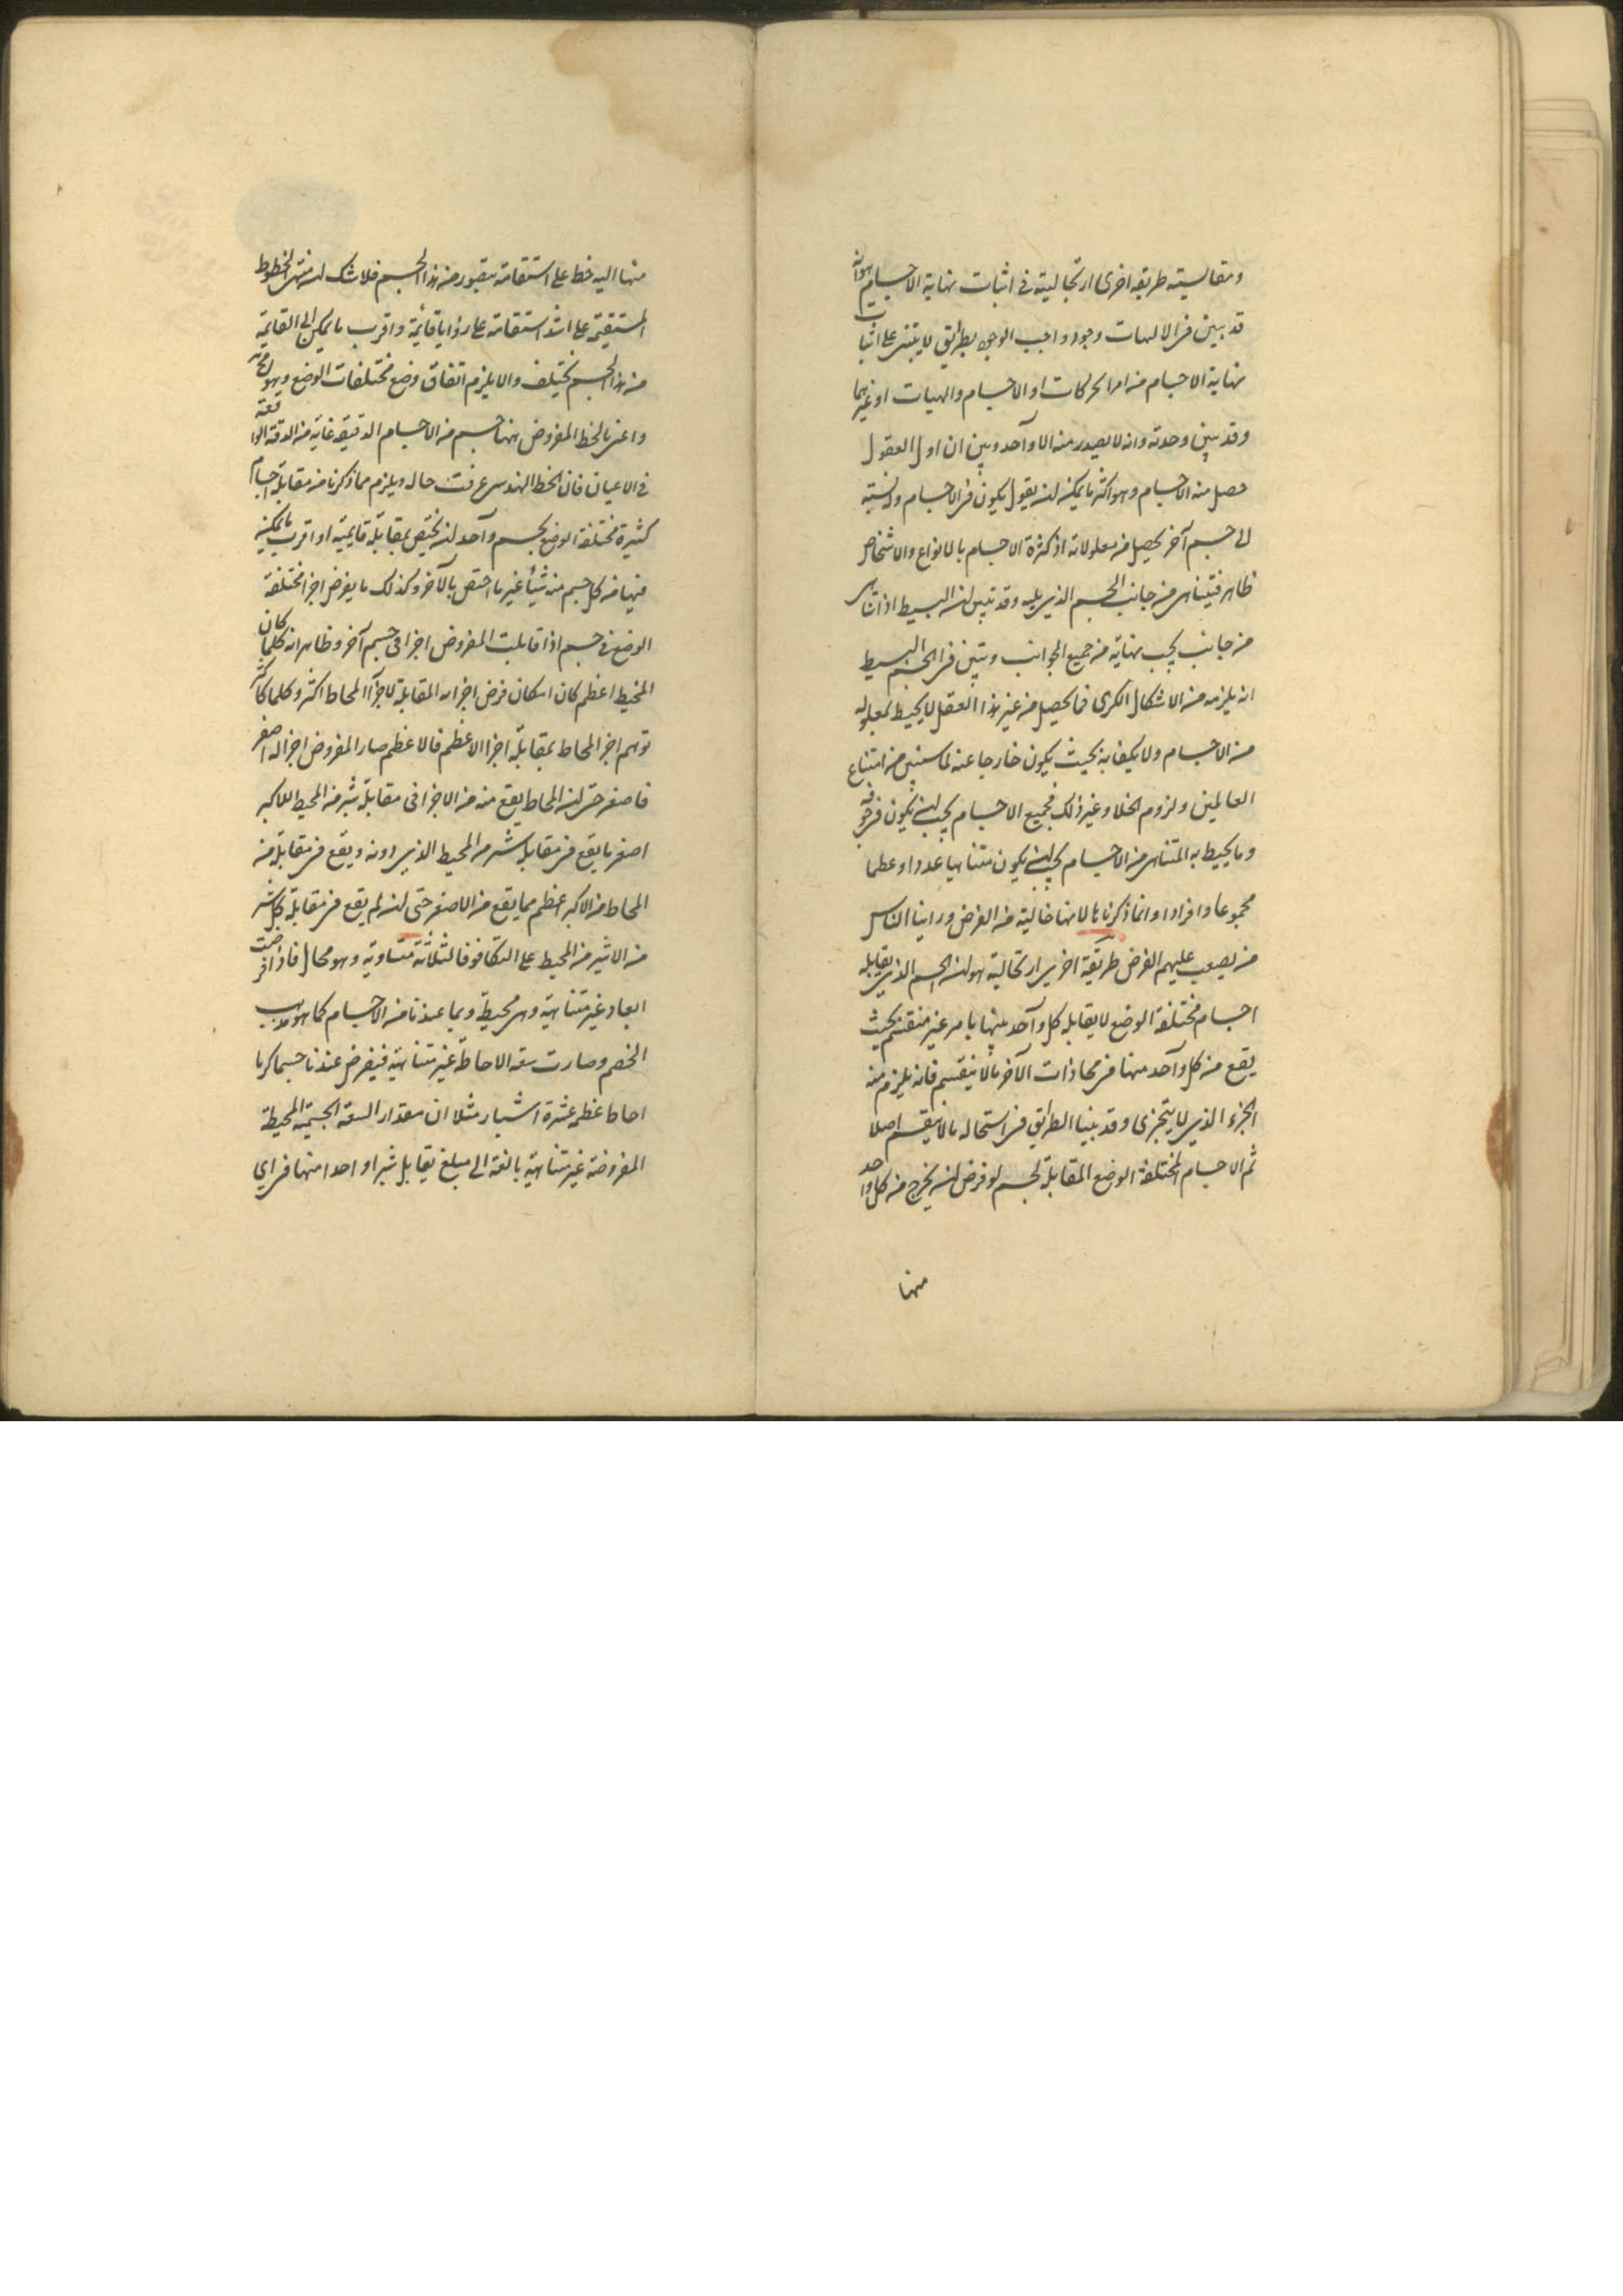 ومقاليسته طريقه اخرى ارتجاليته فى اثبات نهاية الاجسام هوانه
قد بين فى الالهات وجود واجب الوجود بطريق لا يبتنى على اثبات
نهاية الاجسام من امر الحركات او الاجسام والهيات او غيرهما
وقد بين وحدته وانه لا يصدر منه الا واحد وبين ان اول العقول
حصل منه الاجسام وهو اكثر ما يمكنه ان يقول يكون فى الاجسام ولنسبته
الى جسم آخر يحصل من معلولاته اذ كثرة الاجسام بالانواع والاشخاص
ظاهر فيتناهى من جانب الجسم الذى يليه وقد تبين ان البسيط اذا تناهى
من جانب يجب نهايته من جميع الجوانب وتبين فى الجسم البسيط
انه يلزمه من الاشكال الكرى فما يحصل من غير هذا العقل لا يحيط بمعلوله
من الاجسام ولا يكفانه بحيث يكون خارجا عنه لما سنبين من امتناع
العالمين ولزوم الخلا وغير ذلك فجميع الاجسام يجب ان يكون فى جوفه
وما يحيط به المتناهى من الاجسام يجب ان يكون متناهيا عددا وعظما
مجموعا وافرادا وانما ذكرناها لانها خالية من الفرض وراينا الناس
من يصعب عليهم الفرض طريقة اخرى ارتجالية هو ان الجسم الذى يقابله
اجسام مختلفة الوضع لا يقابله كل واحد منها بامر غير منقسم بحيث
يقع من كل واحد منها فى محاذات الآخر ما لا ينقسم فانه يلزم منه
الجزء الذى لا يتجزى وقد بينا الطريق فى استحاله ما لا ينقسم اصلا
ثم الاجسام المختلفة الوضع المقابلة لجسم لو فرض ان يخرج من كل واحد
منها
منها اليه خط على استقامة يتصور من هذا الجسم فلا شك ان منتهى الخطوط
المستقيمة على اشد استقامة على زوايا قائمة واقرب ما يمكن الى القايمة
من هذا الجسم يختلف والا يلزم اتفاق وضع مختلفات الوضع وهو مح
واعنى بالخط المفروض ههنا جسم من الاجسام الدقيقه غاية من الدقة الواقعة
فى الاعيان فان الخط الهندسى عرفت حاله ويلزم مما ذكرنا من مقابلة اجسام
كثيرة مختلفة الوضع بجسم واحد ان يختص بمقابلة قايمية او اقرب ما يمكن
منها من كل جسم منه شيأ غير ما اختص بالآخر وكذلك ما يفرض اجزا مختلفة
الوضع فى جسم اذا قابلت المفروض اجزا فى جسم آخر وظاهر انه كلما كان
المحيط اعظم كان امكان فرض اجزا به المقابلة لاجزآ المحاط اكثر وكلما كان
توهم اجز المحاط بمقابلة اجزا الاعظم فالاعظم صار المفروض اجزا له اصغر
فاصغر حتى ان المحاط يقع منه من الاجزا فى مقابلة شبر من المحيط الاكبر
اصغر ما يقع فى مقابل شبر من المحيط الذى دونه ويقع فى مقابل من
المحاط من الاكبر اعظم مما يقع من الاصغر حتى ان لم يقع فى مقابلة كل شبر
من الاشبر من المحيط على التكافو فالثلاثة متساوية وهو محال فاذا فرضت
ابعاد غير متناهية وهى محيطة وبما عندنا من الاجسام كما هو مذهب
الخصم وصارت سعة الاحاطة غير متناهية فيفرض عندنا جسما كريا
احاط عظمه عشرة اشبار مثلا ان مقدار السعة الجسمية المحيطة
المفروضة غير متناهية بالغة الى مبلغ يقابل شبرا واحدا منها فى اى